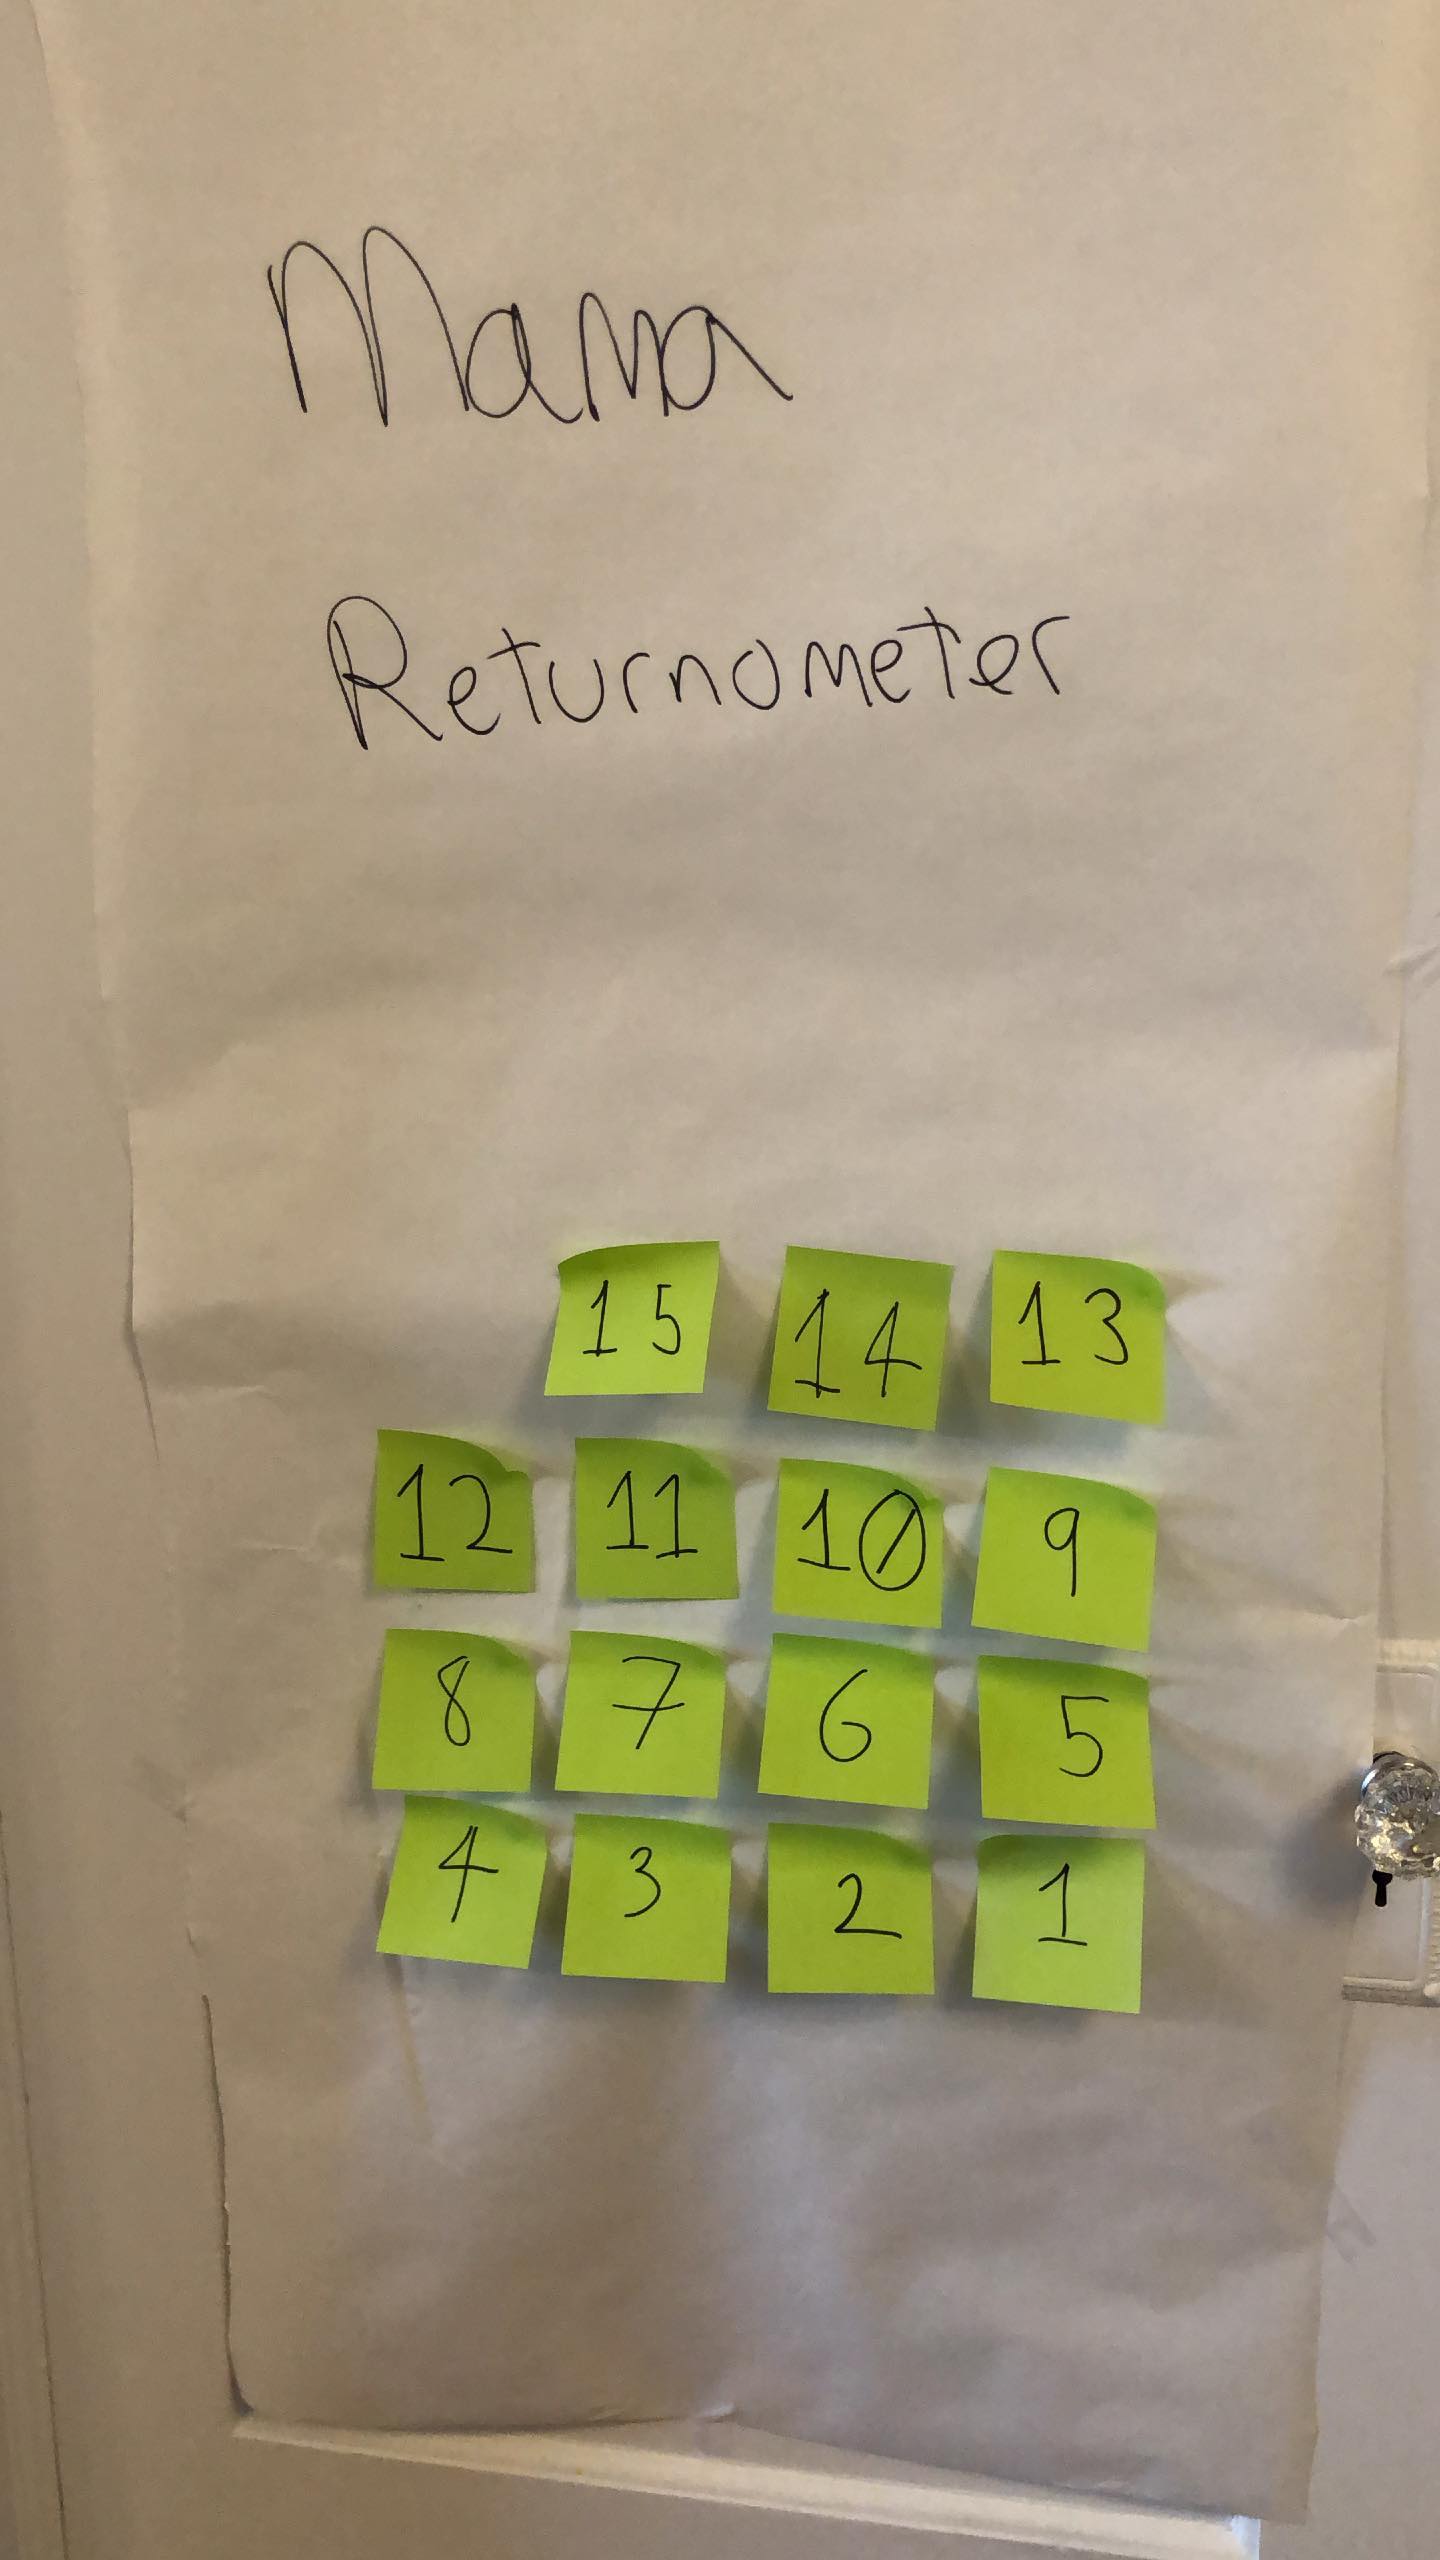 Mama
Returnometer
15 14 13
12 11 10 9
8 7 6 5
4 3 2 1